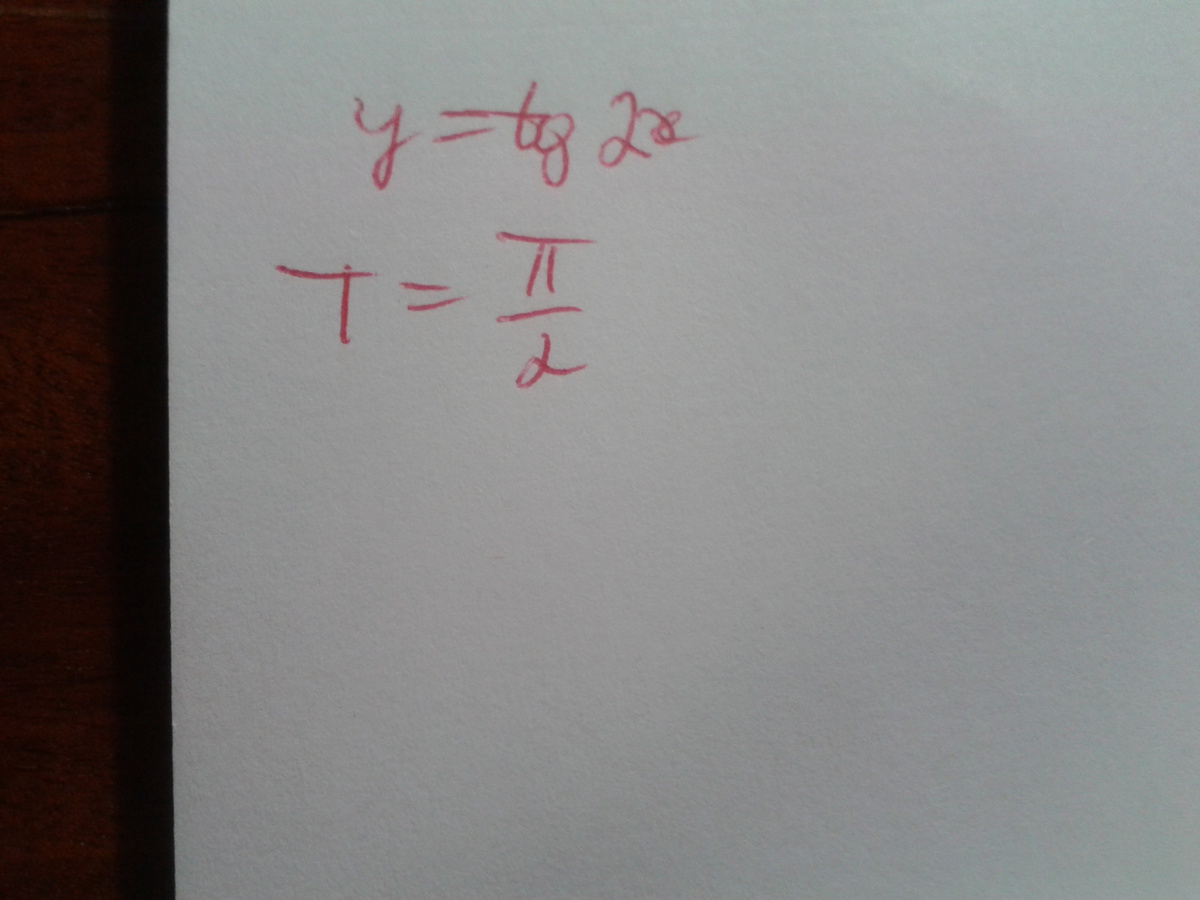 y = tg 2x
T = π/2